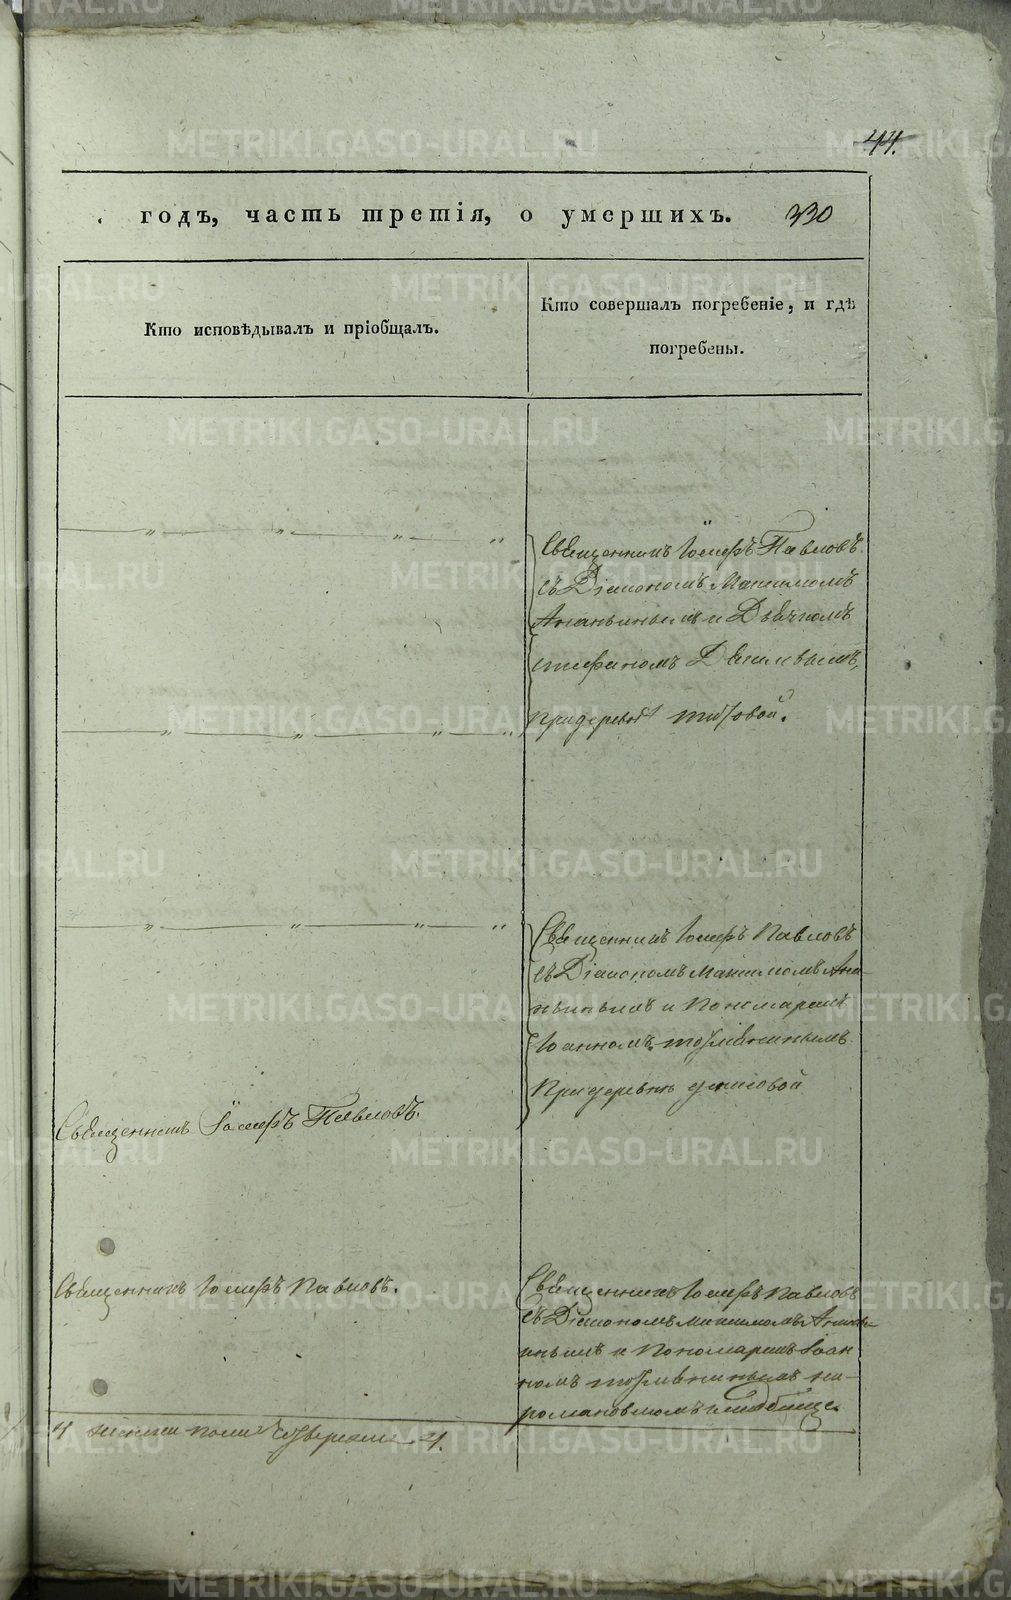 44.
годъ, часть третія, о умершихъ. 330
Кто исповѣдывалъ и пріобщалъ.
Кто совершалъ погребеніе, и гдѣ
погребены.
Священникъ Іосифъ Павловъ
съ Діакономъ Максимомъ
Ананьинымъ и Дьячкомъ
Стефаномъ
при деревнѣ Титовой.
Священникъ Іосифъ Павловъ
съ Діакономъ Максимомъ Ана-
ньинымъ и Пономаремъ
Іоанномъ
При деревнѣ
Священникъ Іосифъ Павловъ.
Священникъ Іосифъ Павловъ.
Священникъ Іосифъ Павловъ
съ Діакономъ Максимомъ Анань-
инымъ и Пономаремъ Іоан
номъ на
романовскомъ кладбище.
4 женска пола Четверо 4.
METRIKI.GASO-URAL.RU